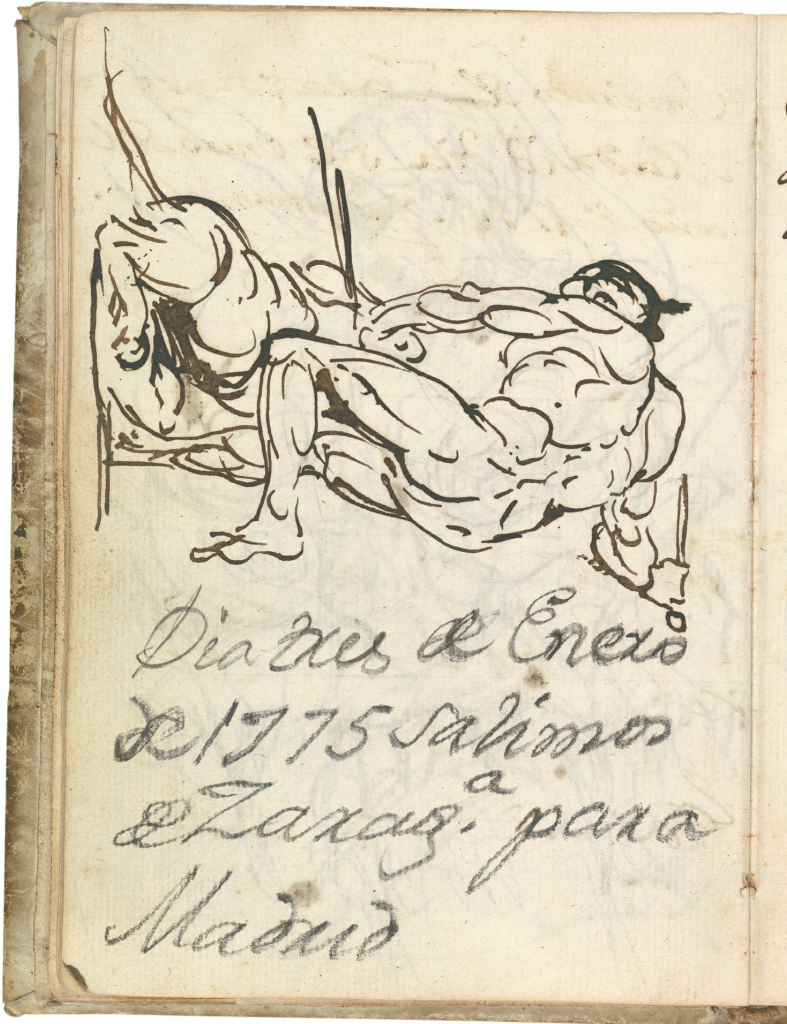 Dia tres de Enero
de 1775 salimos
de Zarag.ª para
Madrid